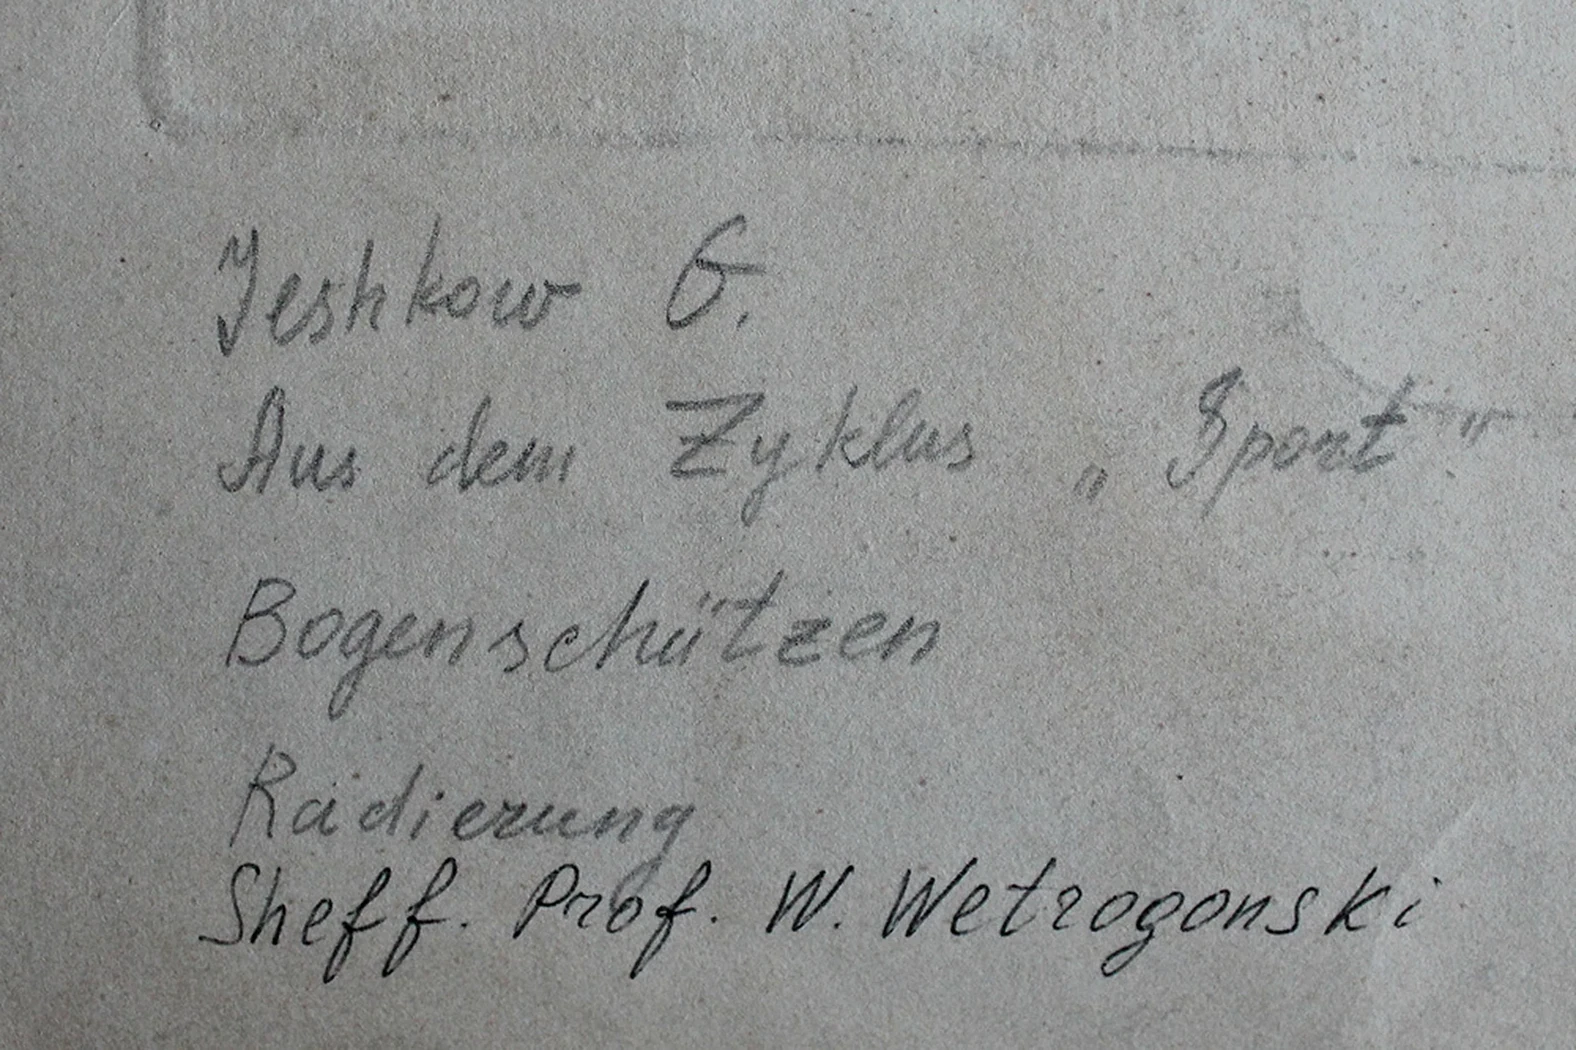 Jeshkow G.
Aus dem Zyklus „Sport"
Bogenschützen
Radierung
Sheff. Prof. W. Wetrogonski